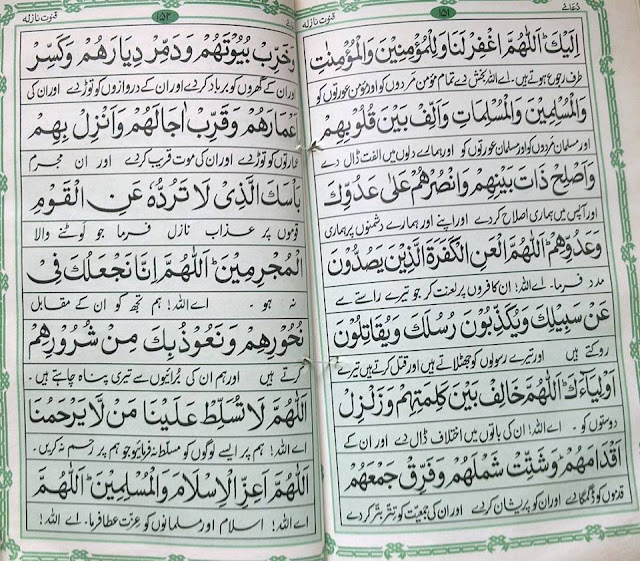 دعائے ۱۵۱ قنوت نازلہ
اِلَيْكَ اَللّٰهُمَّ اغْفِرْ لَنَا وَلِلْمُؤْمِنِيْنَ وَالْمُؤْمِنٰتِ
طرف رجوع ہوتے ہیں۔ اے اللہ بخش دے تمام مؤمن مَردوں کو اور مؤمن عورتوں کو
وَالْمُسْلِمِيْنَ وَالْمُسْلِمَاتِ وَاَلِّفْ بَيْنَ قُلُوْبِهِمْ
اور مسلمان مَردوں کو اور مسلمان عورتوں کو اور ہمارے دلوں میں الفت ڈال دے
وَاَصْلِحْ ذَاتَ بَيْنِهِمْ وَانْصُرْهُمْ عَلٰى عَدُوِّكَ
اور آپس میں ہماری اصلاح کر دے اور اپنے اور ہمارے دشمنوں پر ہماری
وَعَدُوِّهِمْ اَللّٰهُمَّ الْعَنِ الْكَفَرَةَ الَّذِيْنَ يَصُدُّوْنَ
مدد فرما۔ اے اللہ! ان کافروں پر لعنت کر جو تیرے راستے سے
عَنْ سَبِيْلِكَ وَيُكَذِّبُوْنَ رُسُلَكَ وَيُقَاتِلُوْنَ
روکتے ہیں اور تیرے رسولوں کو جھٹلاتے ہیں اور قتل کرتے ہیں تیرے
اَوْلِيَآءَكَ اَللّٰهُمَّ خَالِفْ بَيْنَ كَلِمَتِهِمْ وَزَلْزِلْ
دوستوں کو۔ اے اللہ! ان کی باتوں میں اختلاف ڈال دے اور ان کے
اَقْدَامَهُمْ وَشَتِّتْ شَمْلَهُمْ وَفَرِّقْ جَمْعَهُمْ
قدموں کو ڈگمگا دے اور ان کو پریشان کر دے اور ان کی جمعیّت کو تتر بتر کر دے
۱۵۲ قنوت نازلہ
وَخَرِّبْ بُيُوْتَهُمْ وَدَمِّرْ دِيَارَهُمْ وَكَسِّرْ
اور ان کے گھروں کو برباد کر دے اور ان کے دروازوں کو توڑ دے اور ان کی
عِمَارَهُمْ وَقَرِّبْ اٰجَالَهُمْ وَاَنْزِلْ بِهِمْ
عمارتوں کو توڑ دے اور ان کی موت قریب کر دے اور ان مجرم
بَأْسَكَ الَّذِيْ لَا تَرُدُّهٗ عَنِ الْقَوْمِ
قوموں پر عذاب نازل فرما جو لوٹنے والا
الْمُجْرِمِيْنَ اَللّٰهُمَّ اِنَّا نَجْعَلُكَ فِيْ
نہ ہو۔ اے اللہ! ہم تجھ کو ان کے مقابل
نُحُوْرِهِمْ وَنَعُوْذُ بِكَ مِنْ شُرُوْرِهِمْ
کرتے ہیں اور ہم ان کی بُرائیوں سے تیری پناہ چاہتے ہیں۔
اَللّٰهُمَّ لَا تُسَلِّطْ عَلَيْنَا مَنْ لَّا يَرْحَمُنَا
اے اللہ! ہم پر ایسے لوگوں کو مسلط نہ فرمائیو جو ہم پر رحم نہ کریں۔
اَللّٰهُمَّ اَعِزِّ الْاِسْلَامَ وَالْمُسْلِمِيْنَ اَللّٰهُمَّ
اے اللہ! اسلام اور مسلمانوں کو عزت عطا فرما۔ اے اللہ!